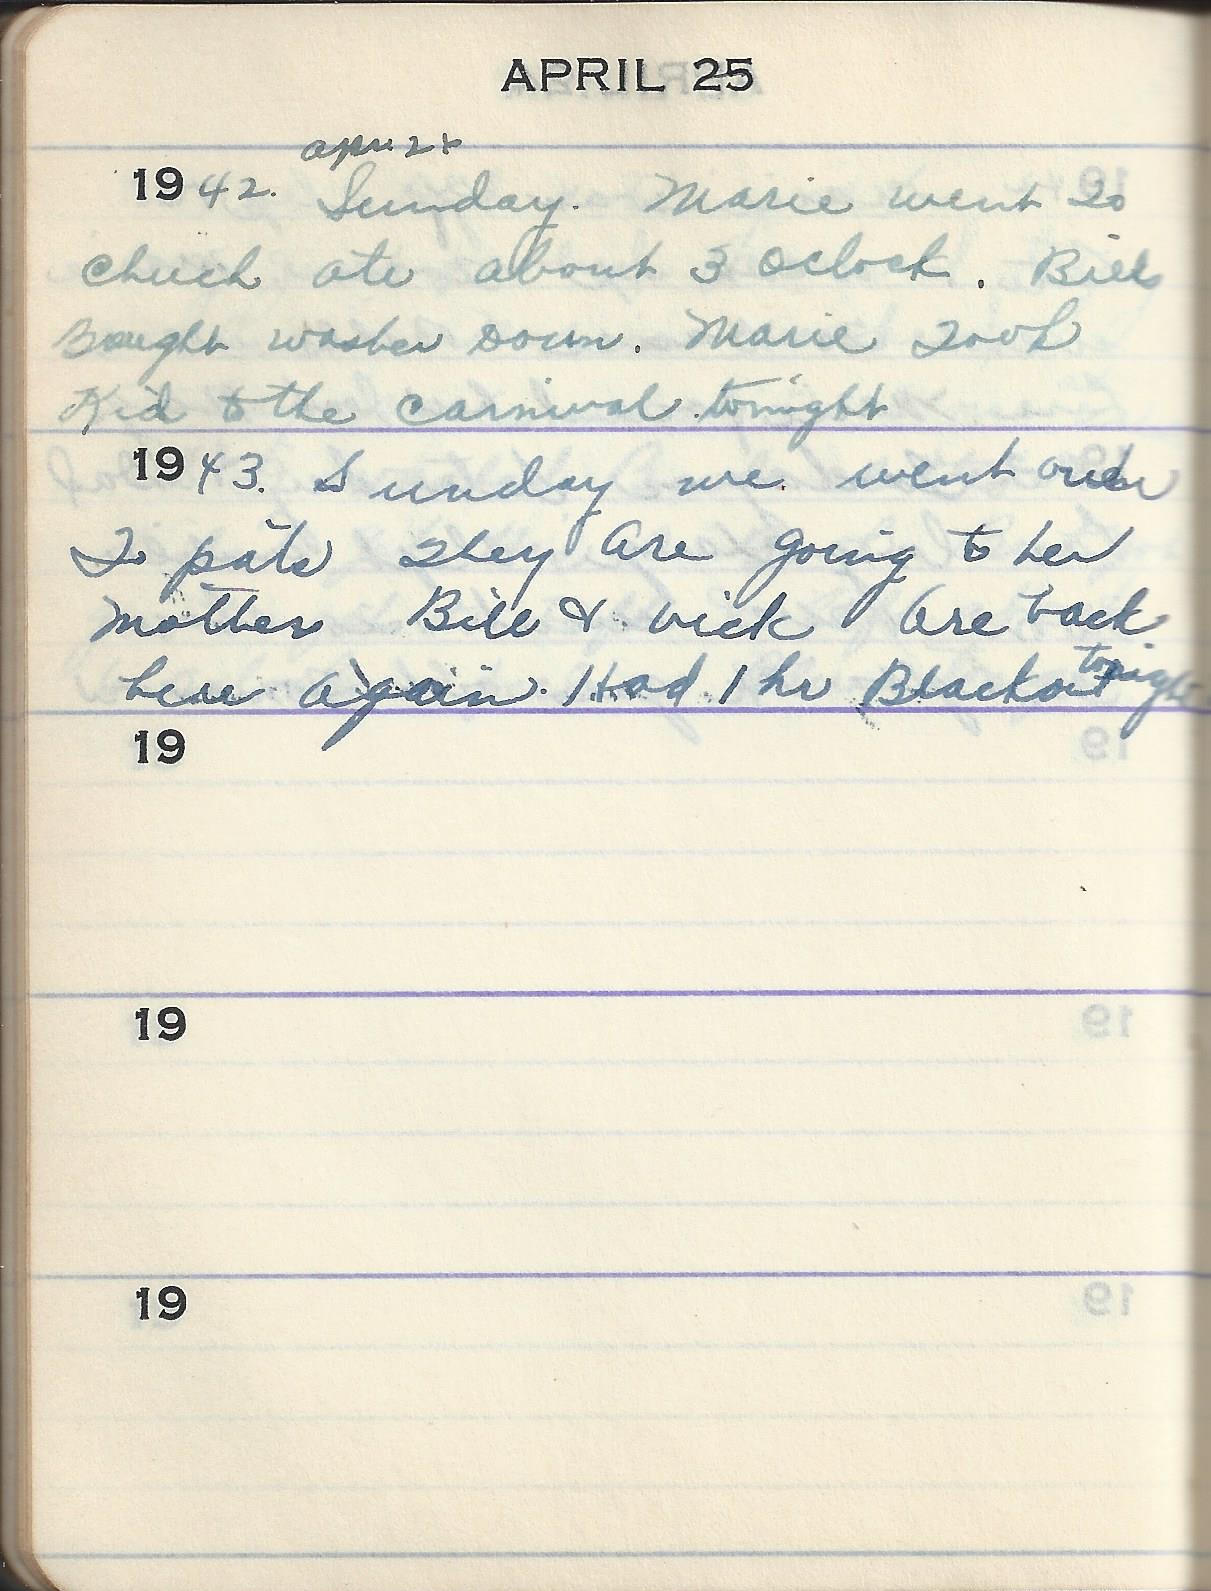 APRIL 25
1942. Sunday. Marie went to
chuch ate about 3 oclock. Bill
Bought washer Down. Marie took
Kid to the carnival tonight
1943. Sunday we. went over
To pats they are going to her
mother Bill & vick are back
here again. Had 1 hr Blackout tonight
19
19
19